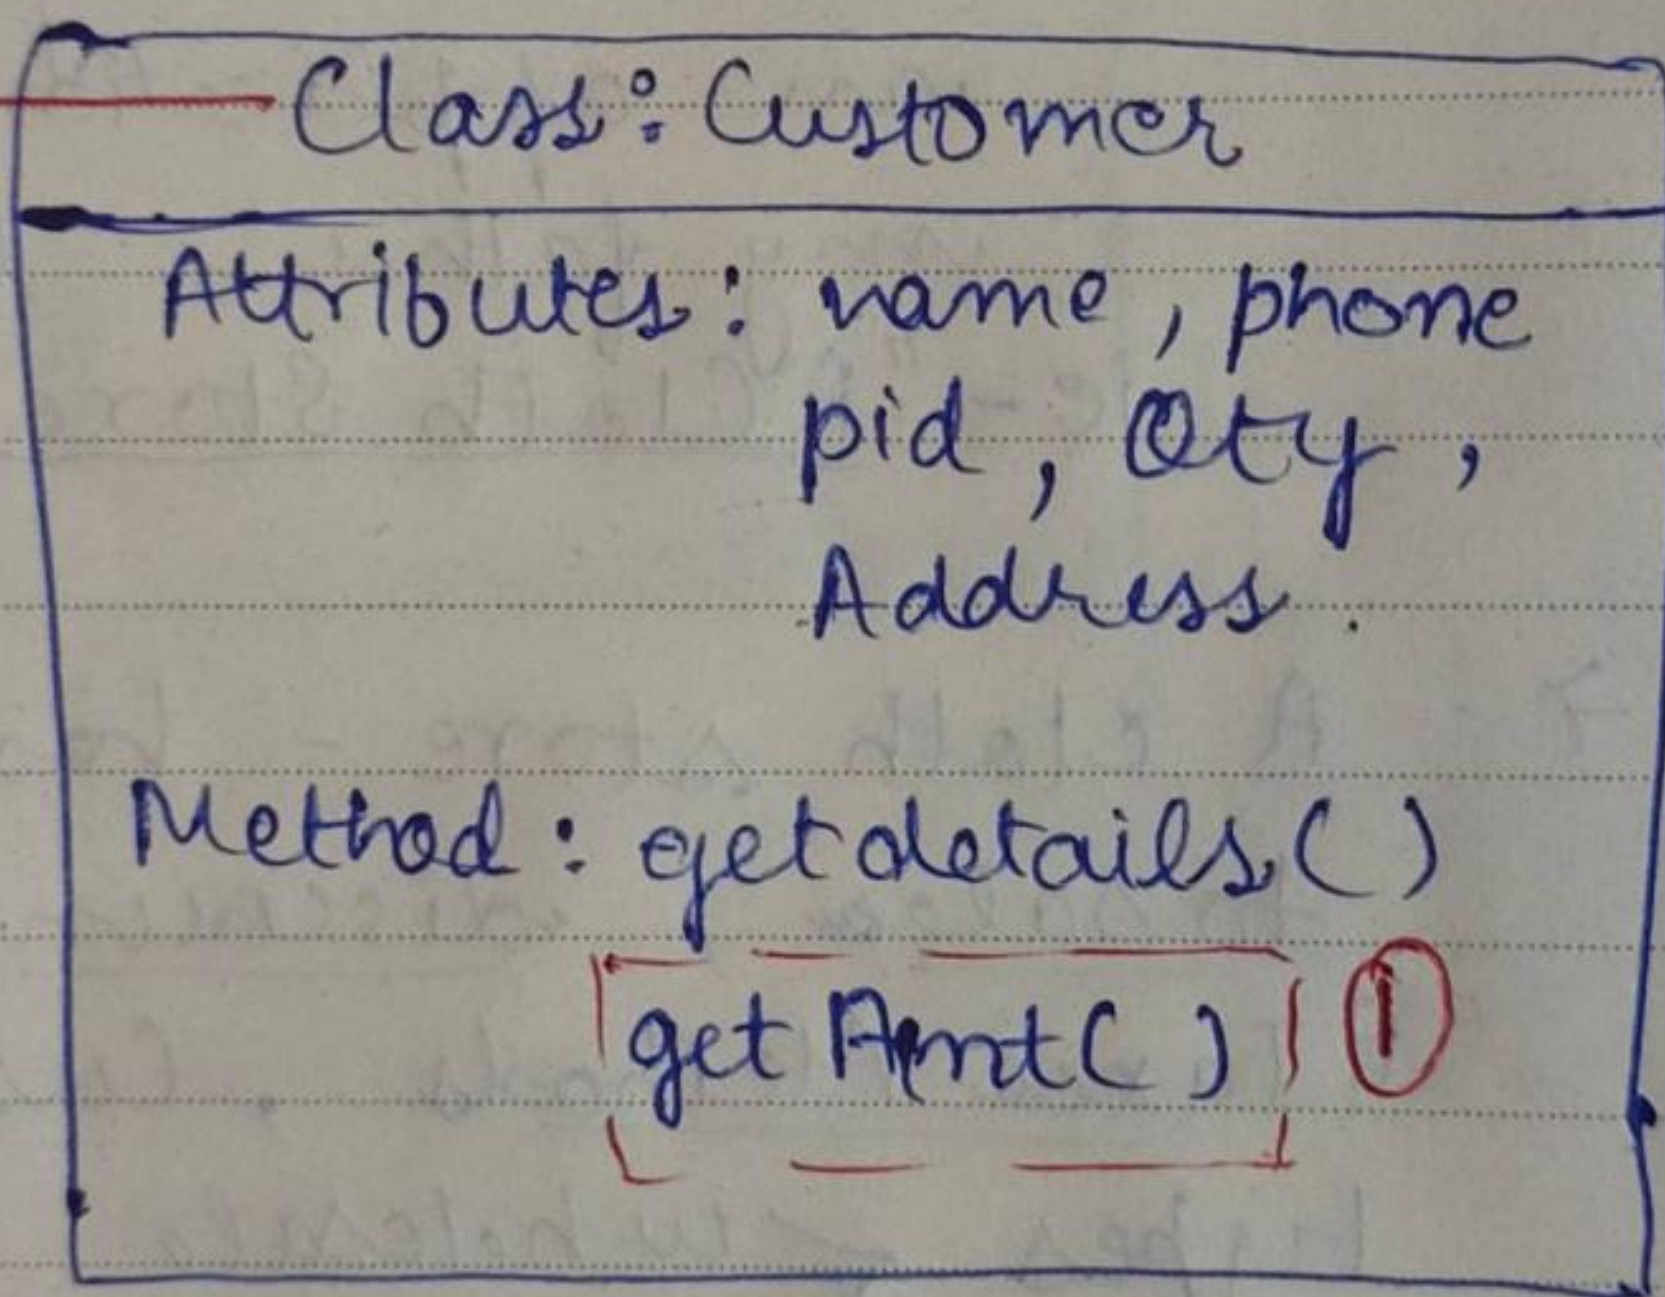 Class: Customer
Attributes: name, phone
pid, Qty,
Address.
Method: getdetails()
getAmt() 1